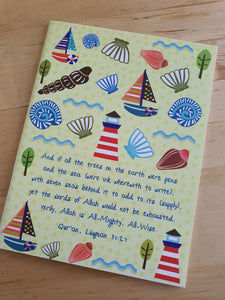 And if all the trees on the earth were pens
and the sea (were ink wherewith to write),
with seven seas behind it to add to its (supply),
yet the words of Allah would not be exhausted.
Verily, Allah is All-Mighty, All-Wise.
Qur'an, Luqman 31:27